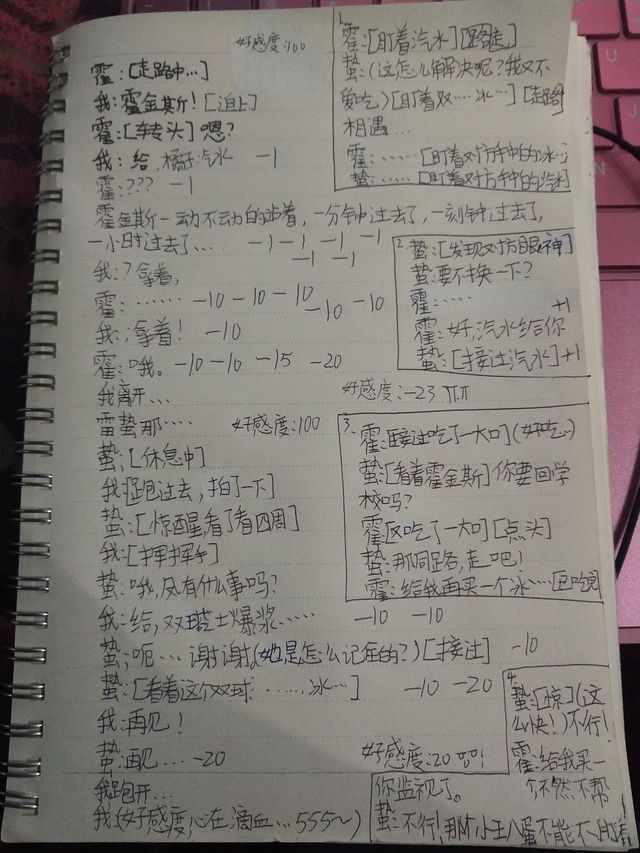 好感度:100
霍:[走路中…]
我:霍金斯![追上]
霍:[转头]嗯?
我:给,橘子汽水 -1
霍:??? -1
霍金斯一动不动的站着,一分钟过去了,一刻钟过去了,
一小时过去了… -1 -1 -1 -1
-1 -1
我:?拿着,
霍:…… -10 -10 -10
-10 -10
我:拿着! -10
霍:哦。-10 -10 -15 -20
我离开… 好感度:-23
雷蛰那…… 好感度:100
蛰:[休息中]
我:[跑过去,拍了一下]
蛰:[惊醒,看了看四周]
我:[挥挥手]
蛰:哦,风有什么事吗?
我:给,双球芝士爆浆…… -10 -10
蛰:呃…谢谢,(她是怎么记住的?)[接过] -10
蛰:[看着这个双球……冰…] -10 -20
我:再见!
蛰:再见… -20 好感度:20
我跑开…
我:(好感度,心在滴血…555~)
1.
霍:[盯着汽水][路走]
蛰:(这怎么解决呢?我又不
爱吃)[盯着双…冰…][走路]
相遇…
霍:……[盯着对方手中的冰…]
蛰:……[盯着对方手中的汽水]
2.
蛰:[发现对方眼神]
蛰:要不换一下?
霍:…… +1
霍:好,汽水给你
蛰:[接过汽水]+1
3.
霍:[接过吃了一大口](好吃…)
蛰:[看着霍金斯]你要回学
校吗?
霍:[又吃了一大口][点头]
蛰:那同路,走吧!
霍:给我再买一个冰…[已吃完]
4.
蛰:[惊](这
么快!)不行!
霍:给我买一
个,不然不帮
你监视了。
蛰:不行!那小王八蛋不能不